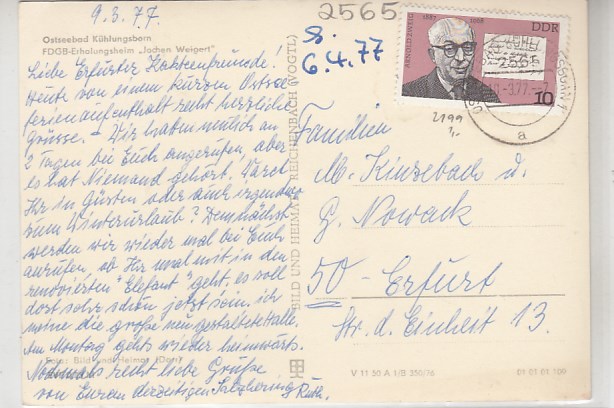 9.3.77.
Ostseebad Kühlungsborn
FDGB-Erholungsheim „Jochen Weigert"
Liebe Erfurter Kartenfreunde.
Heute von einem kurzen Ostsee
ferienaufenthalt recht herzliche
Grüsse. - Wir haben neulich an
2 Tagen bei Euch angerufen, aber
es hat Niemand gehört. Waret
Ihr in Gästen oder auch irgendwo
zum Winterurlaub? Demnächst
werden wir wieder mal bei Euch
anrufen, ob Ihr mal mit in den
renovierten "Elefant" geht, es soll
dort sehr schön jetzt sein. ich
meine die große neu gestaltete Halle.
Am Montag gehts wieder heimwärts.
Foto: Bild und Heimat (Darr)
Nochmals recht liebe Grüße
von Eurem derzeitigen Ruth.
BILD UND HEIMAT REICHENBACH (VOGTL)
2565
6.4.77
ARNOLD ZWEIG
1887 1968
DDR
2565
10
-3.77.-7
a
2199
Familien
M. Kinzebach u.
G. Nowack
50 - Erfurt
Str. d. Einheit 13
V 11 50 A 1/B 350/76
01 01 01 100